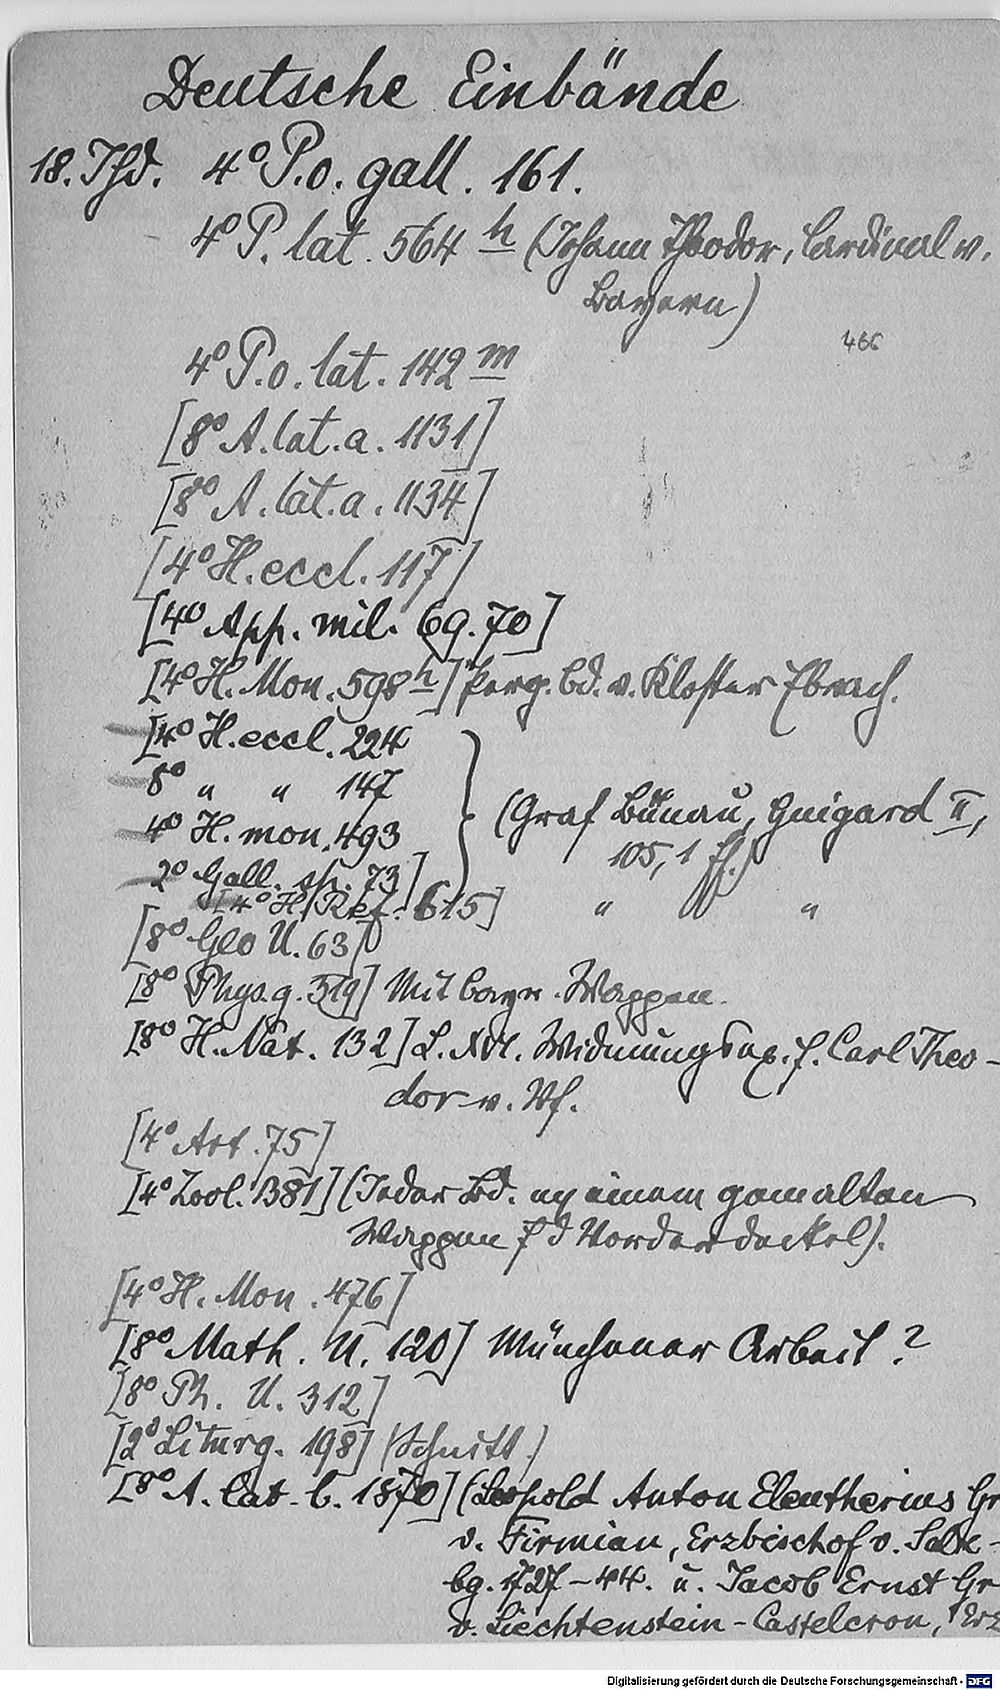 Deutsche Einbände
18. Jhd. 4° P.o. gall. 161.
4° P. lat. 564 h (Johann Theodor, Cardinal v.
Bayern)
466
4° P.o. lat. 142 m
[8° A. lat. a. 1131]
[8° A. lat. a. 1134]
[4° H. eccl. 117]
[4° App. mil. 69.70]
[4° H. Mon. 598 h] Perg. bd. v. Kloster Ebrach.
[4° H. eccl. 224
8° " " 147
4° H. mon. 493 (Graf Bünau, Guigard II,
2° Gall. sp. 73] 105, 1 ff.)
[4° H. Ref. 615] " "
[8° Geo U. 63]
[8° Phys. g. 319] Mit bayr. Wappen.
[8° H. Nat. 132] L. Widmungsex. f. Carl Theo-
dor v. Vf.
[4° Art. 75]
[4° Zool. 381] (Jeder Bd. einem gemalten
Wappen Vorderdeckel).
[4° H. Mon. 476]
[8° Math. U. 120] Münchener Arbeit?
[8° Ph. U. 312]
[2° Liturg. 198] (Schnitt)
[8° A. lat. b. 1870] (Leopold Anton Eleutherius Gr
v. Firmian, Erzbischof v. Salz-
bg. 1727-44. u. Jacob Ernst Gr
v. Liechtenstein-Castelcron, Erz
Digitalisierung gefördert durch die Deutsche Forschungsgemeinschaft - DFG